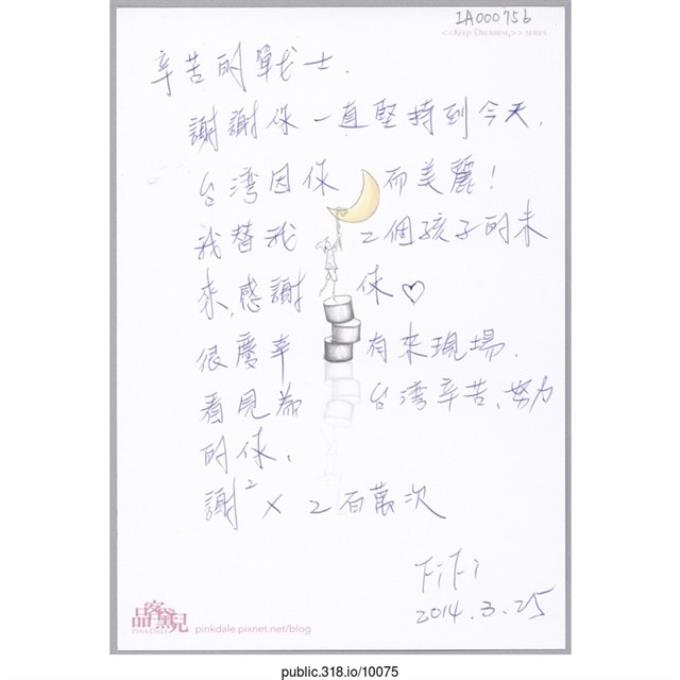 IA000756
<<KEEP DREAMING>> SERIES
辛苦的戰士.
謝謝你一直堅持到今天.
台灣因你而美麗!
我替我2個孩子的未
來,感謝你♡
很慶幸有來現場.
看見為台灣辛苦、努力
的你、
謝² x 2百萬次
FiFi
2014.3.25
品客黛兒
PINKDALE
pinkdale.pixnet.net/blog
public.318.io/10075